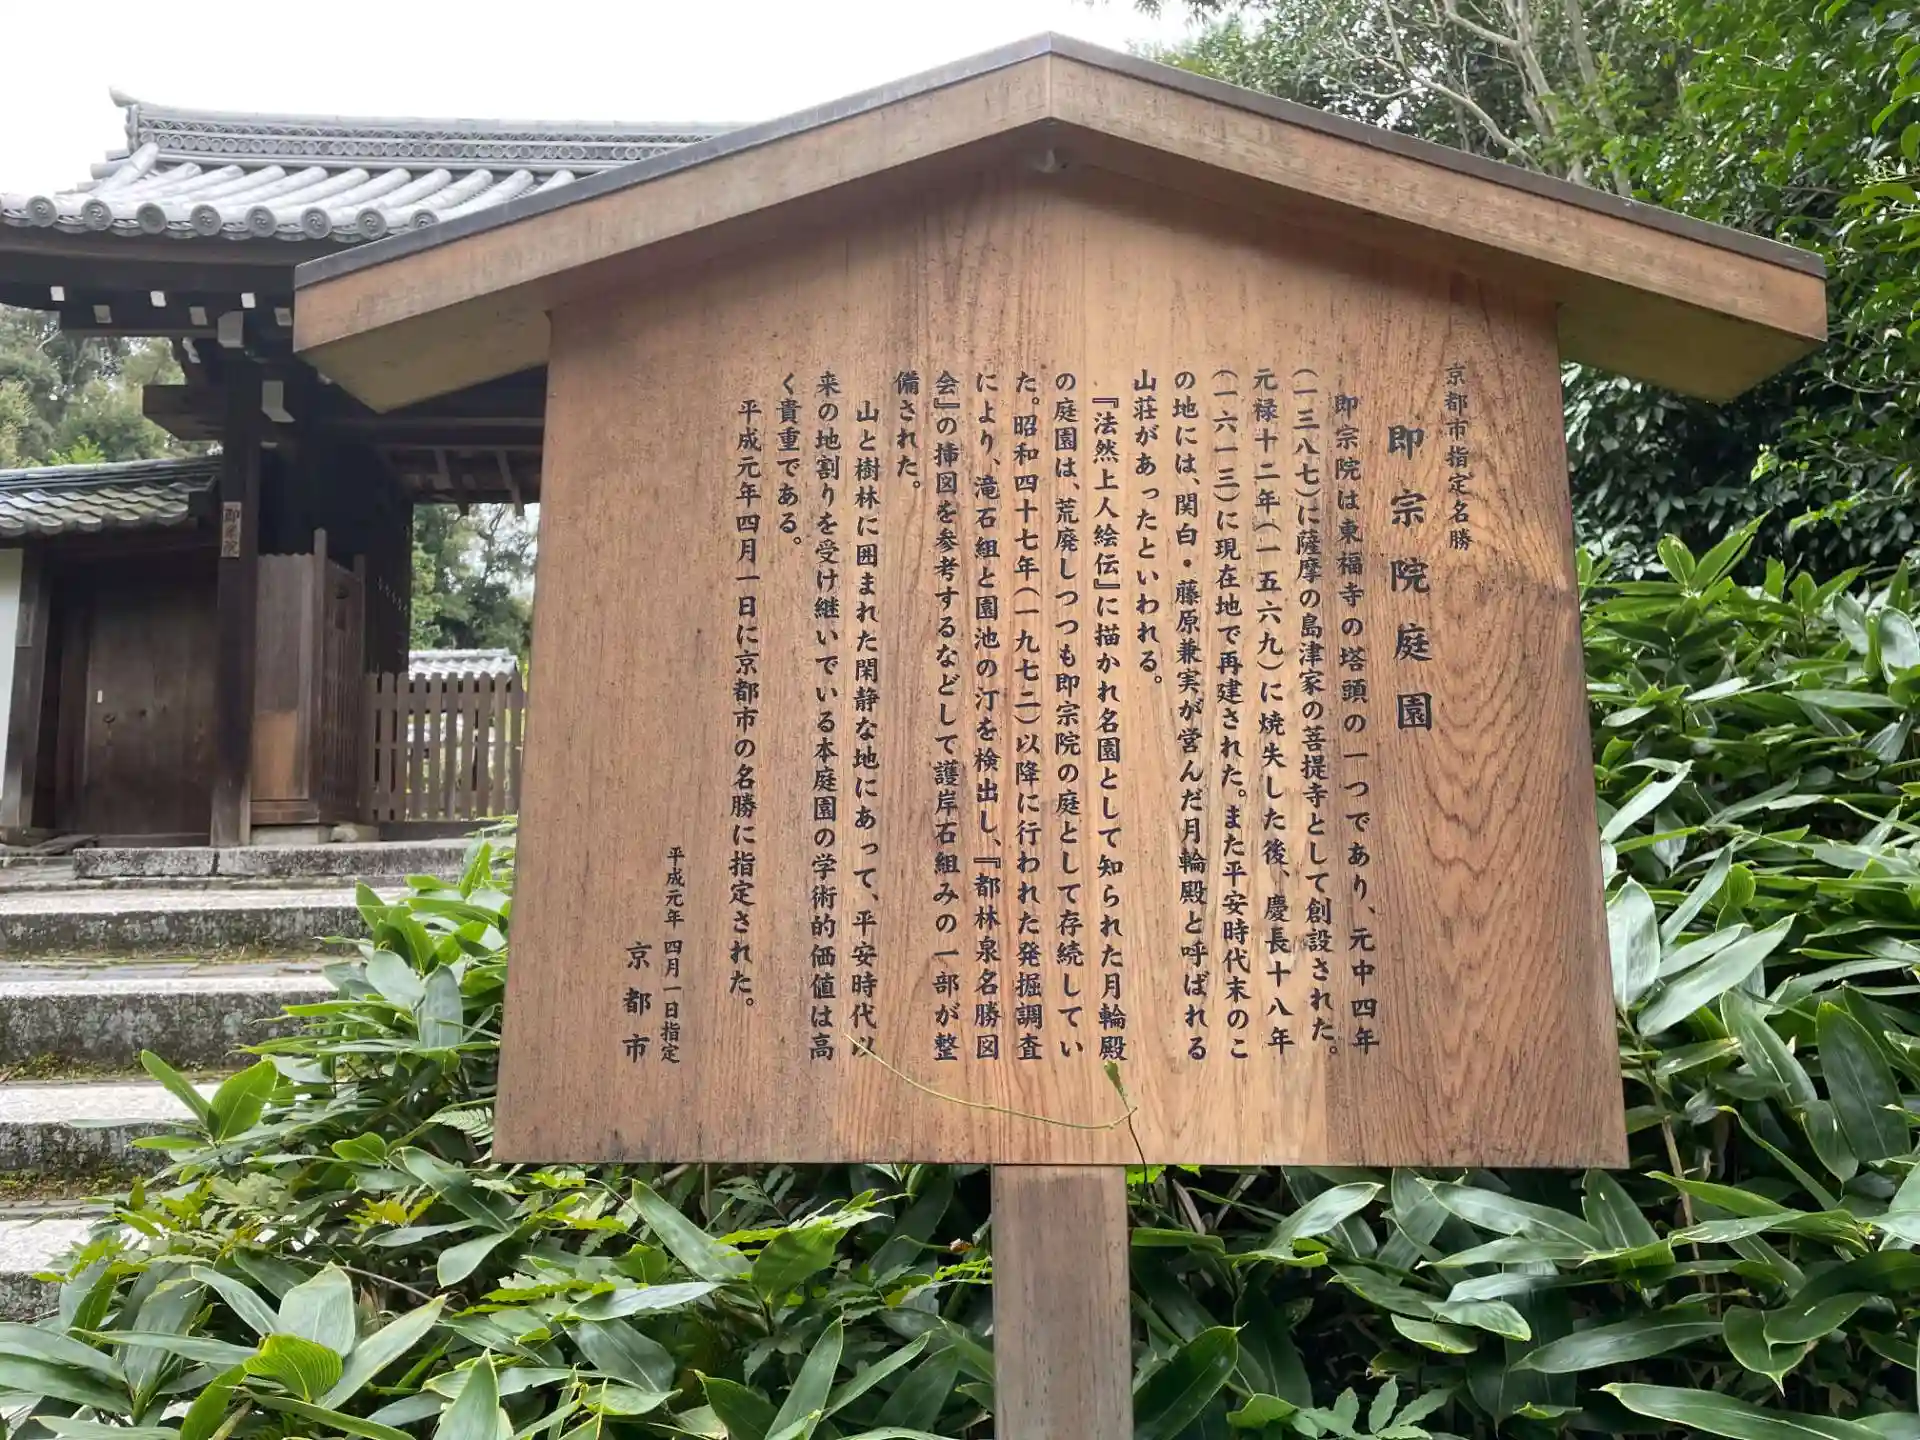 京都市指定名勝
即宗院庭園
即宗院は東福寺の塔頭の一つであり、元中四年
(一三八七)に薩摩の島津家の菩提寺として創設された。
元禄十二年(一五六九)に焼失した後、慶長十八年
(一六一三)に現在地で再建された。また平安時代末のこ
の地には、関白・藤原兼実が営んだ月輪殿と呼ばれる
山荘があったといわれる。
『法然上人絵伝』に描かれ名園として知られた月輪殿
の庭園は、荒廃しつつも即宗院の庭として存続してい
た。昭和四十七年(一九七二)以降に行われた発掘調査
により、滝石組と園池の汀を検出し、『都林泉名勝図
会』の挿図を参考するなどして護岸石組みの一部が整
備された。
山と樹林に囲まれた閑静な地にあって、平安時代以
来の地割りを受け継いでいる本庭園の学術的価値は高
く貴重である。
平成元年四月一日に京都市の名勝に指定された。
平成元年四月一日指定
京都市
即宗院